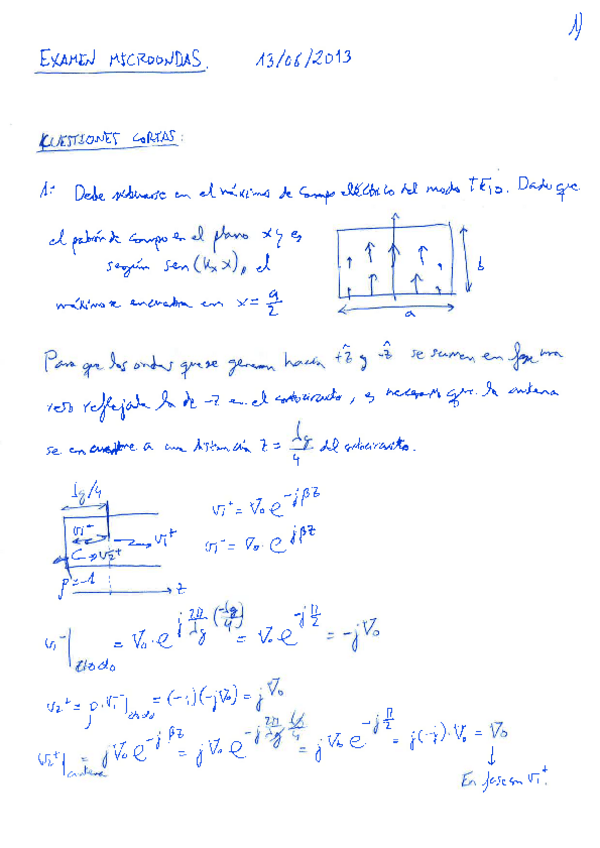 1)
EXAMEN MICROONDAS. 13/06/2013
CUESTIONES CORTAS:
1.- Debe situarse en el máximo de campo eléctrico del modo TE10. Dado que
el patrón de campo en el plano xy es
según sen(Kx x), el
máximo se encuentra en x = a/2
b
a
Para que las ondas que se generan hacia +ẑ y -ẑ se sumen en fase una
vez reflejada la de -z en el cortocircuito, es necesario que la antena
se encuentre a una distancia z = λg/4 del cortocircuito.
λg/4
v1⁻ v1⁺
v2⁺
ρ=-1
z
v1⁺ = V0 e^{-jβz}
v1⁻ = V0 · e^{jβz}
v1⁻| = V0 · e^{j 2π/λg (-λg/4)} = V0 e^{-j π/2} = -jV0
v2⁺ = ρ · v1⁻| = (-1)(-jV0) = jV0
v2⁺|antena = jV0 e^{-jβz} = jV0 e^{-j 2π/λg λg/4} = jV0 e^{-j π/2} = j(-j)·V0 = V0
↓
En fase con v1⁺.